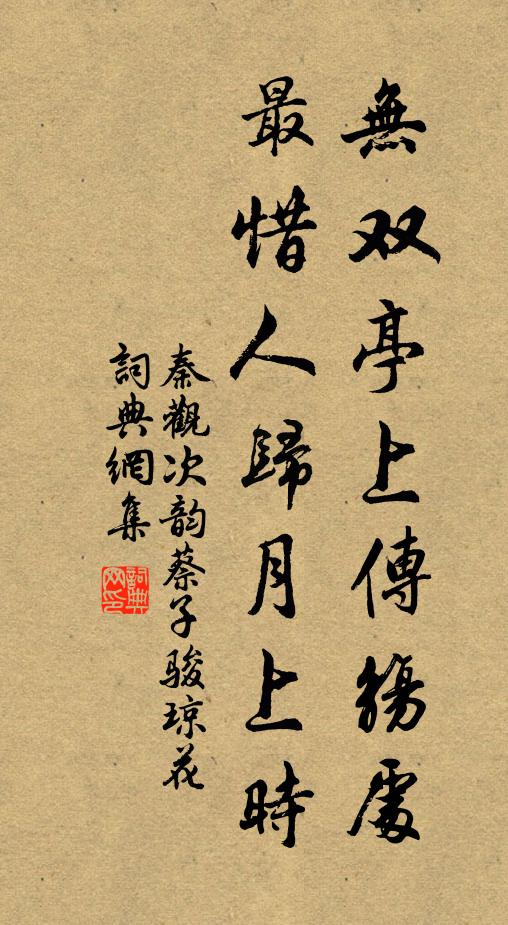 無双亭上傳觴處
最惜人歸月上時
秦觀次韵蔡子駿琼花
詞典網集
詞典网印